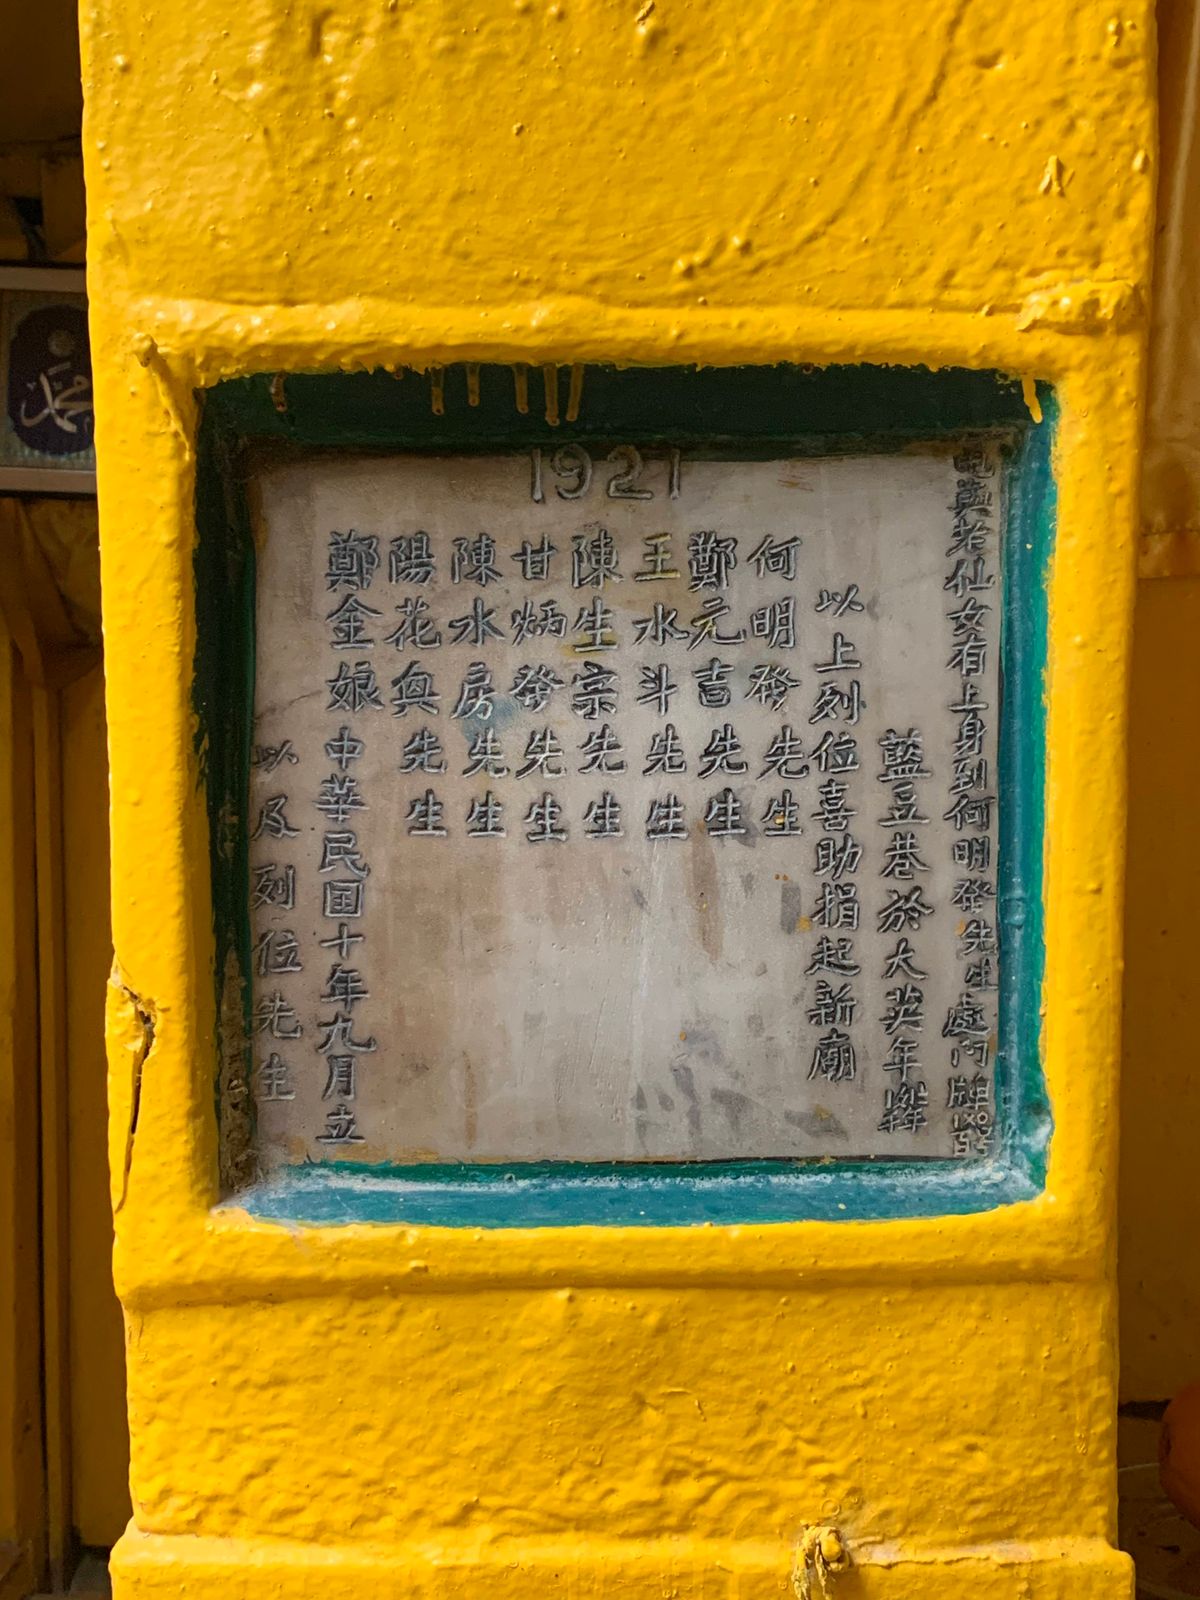 1921
與老仙女有上身到何明發先生處門牌
藍豆巷於大英年
以上列位喜助捐起新廟
何明發先生
鄭元吉先生
王水斗先生
陳生宗先生
甘炳發先生
陳水房先生
陽花奐先生
鄭金娘
中華民国十年九月立
以及列位先生
محمد